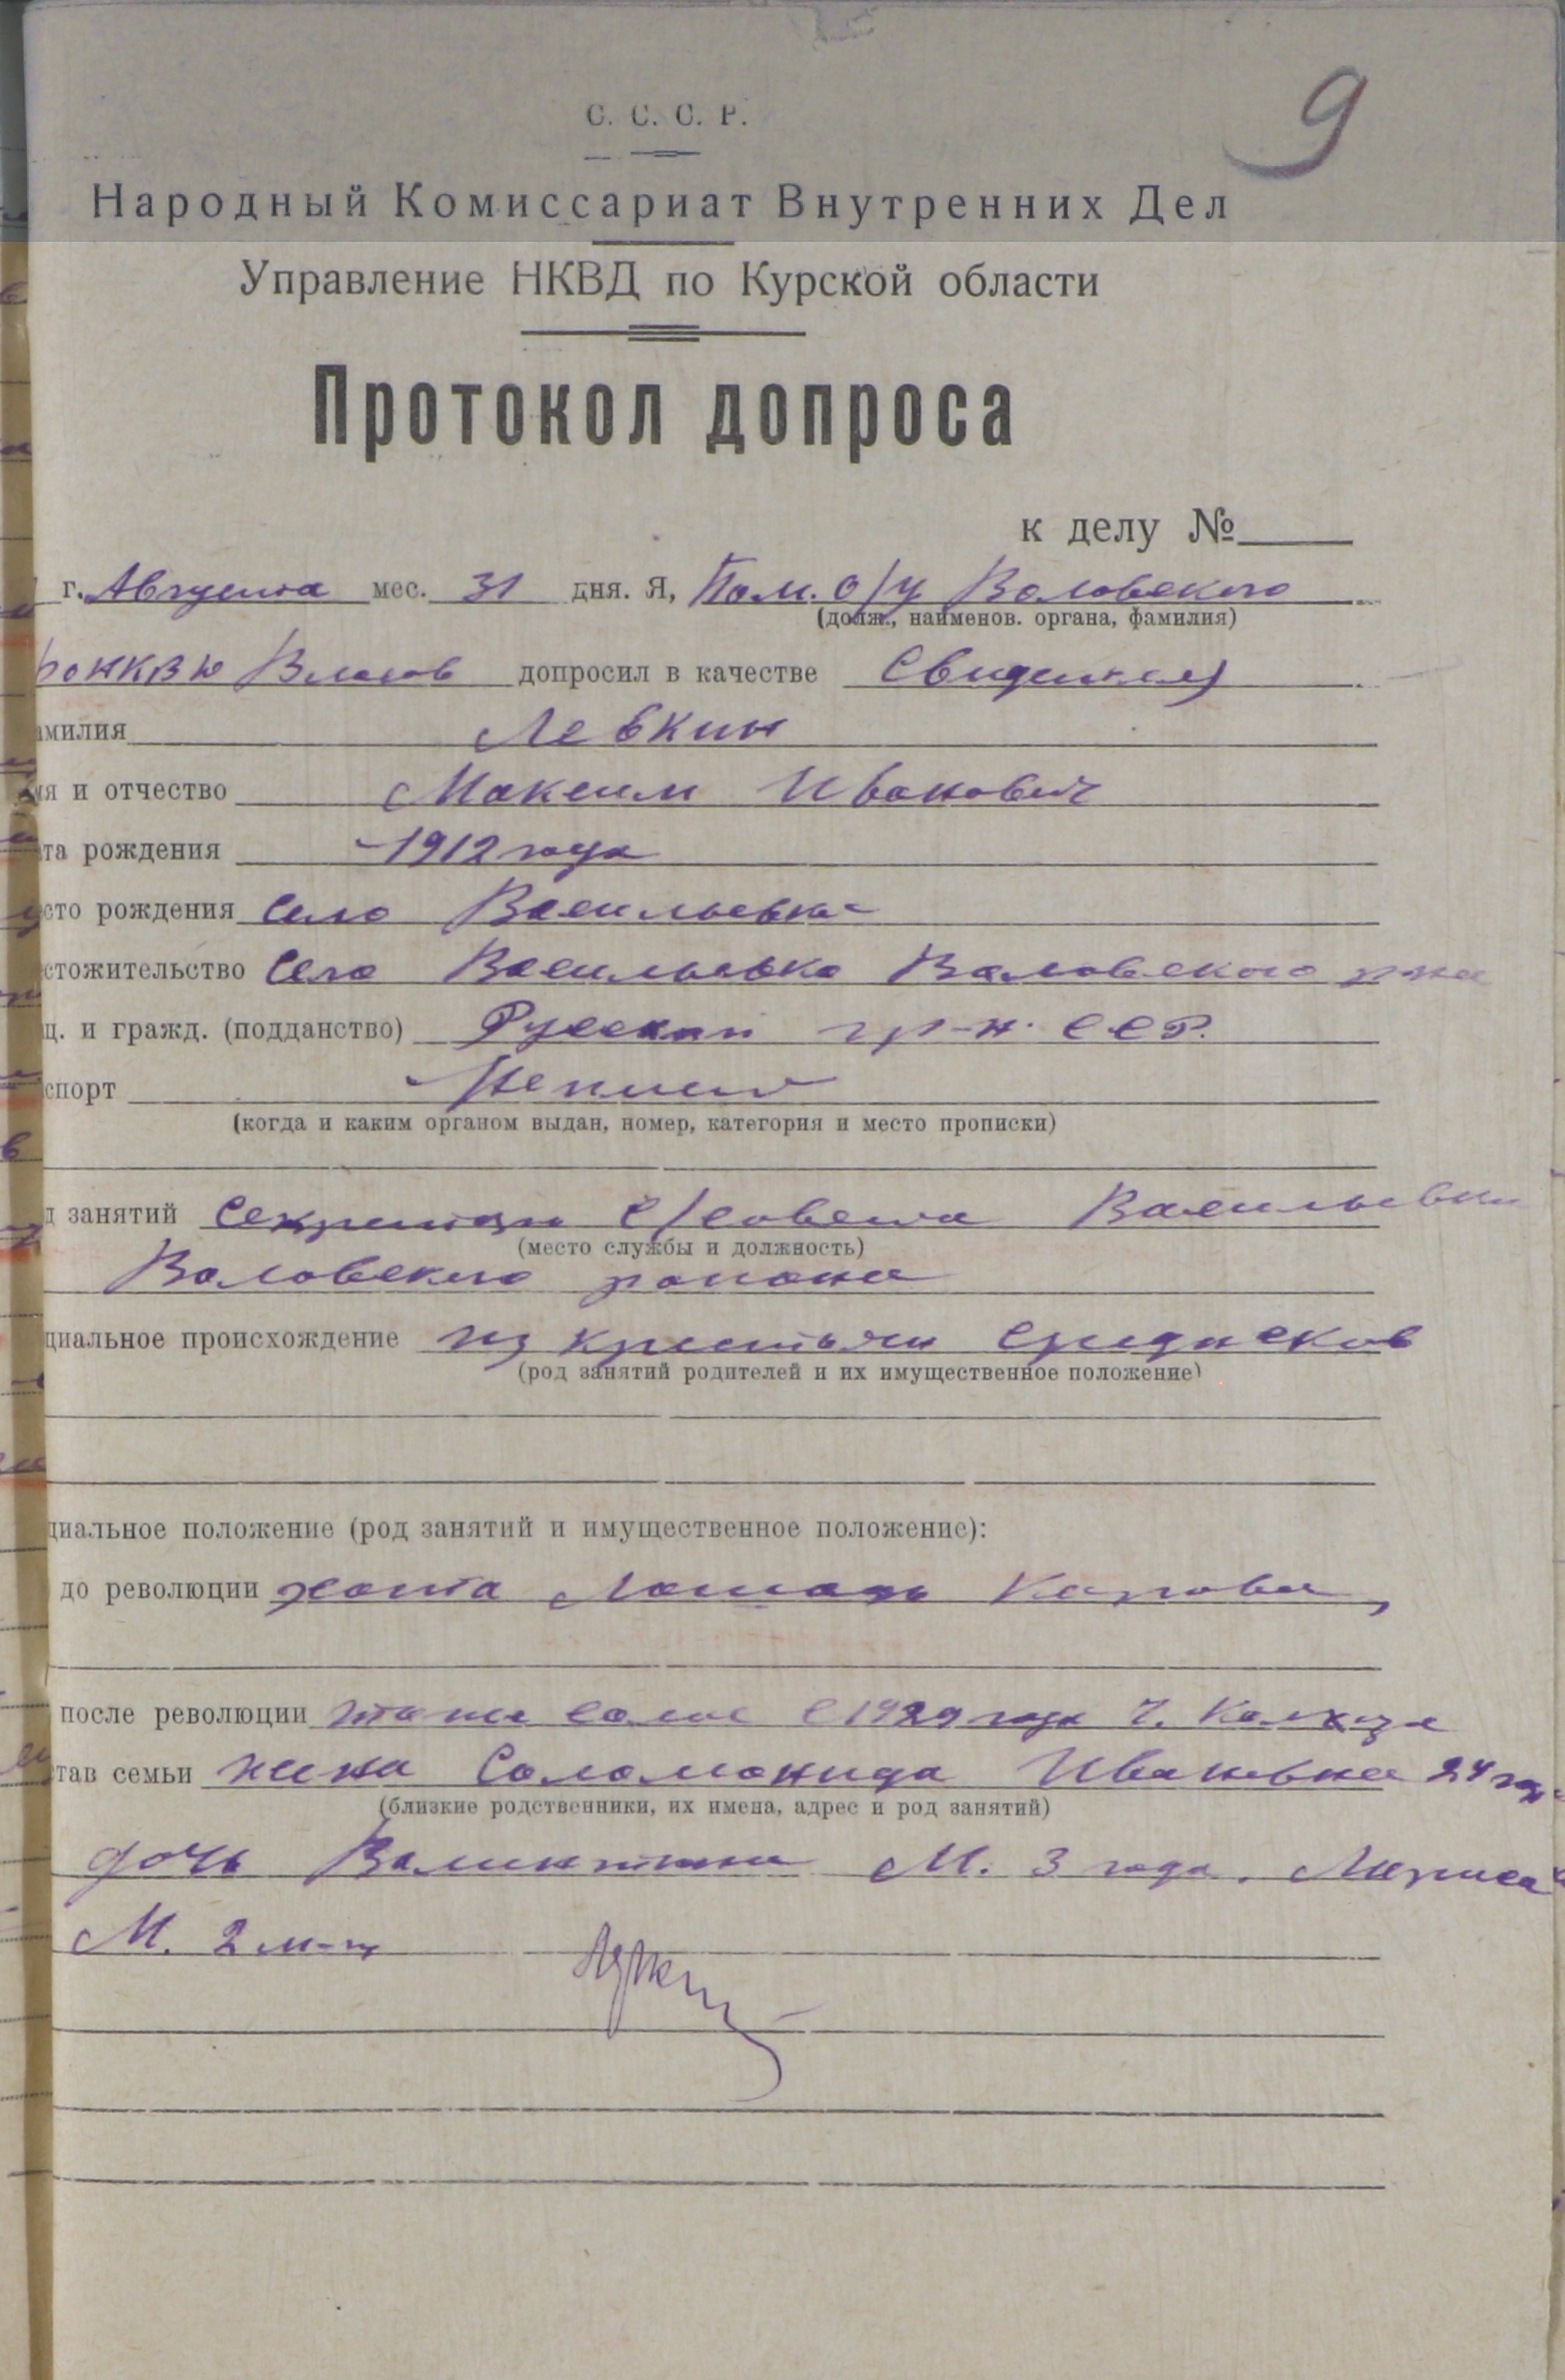 9
С. С. С. Р.
Народный Комиссариат Внутренних Дел
Управление НКВД по Курской области
Протокол допроса
к делу №
г. Августа мес. 31 дня. Я, Пом. о/у Воловского
(долж., наименов. органа, фамилия)
РОНКВД Власов допросил в качестве Свидетеля
амилия Левкин
мя и отчество Максим Иванович
та рождения 1912 года
сто рождения Село Васильевка
стожительство Село Васильевка Воловского р-на
ц. и гражд. (подданство) Русский гр-н. ССР.
спорт Неимеет
(когда и каким органом выдан, номер, категория и место прописки)
д занятий Секретарь с/совета Васильевки
(место службы и должность)
Воловского района
циальное происхождение из крестьян середнеков
(род занятий родителей и их имущественное положение)
циальное положение (род занятий и имущественное положение):
до революции хата Лошадь Карова,
после революции тоже самое с 1929 года ч. Колхоза
тав семьи жена Соломонида Ивановна 24 года
(близкие родственники, их имена, адрес и род занятий)
дочь Валинтина М. 3 года. Лариса
М. 2 м-ц